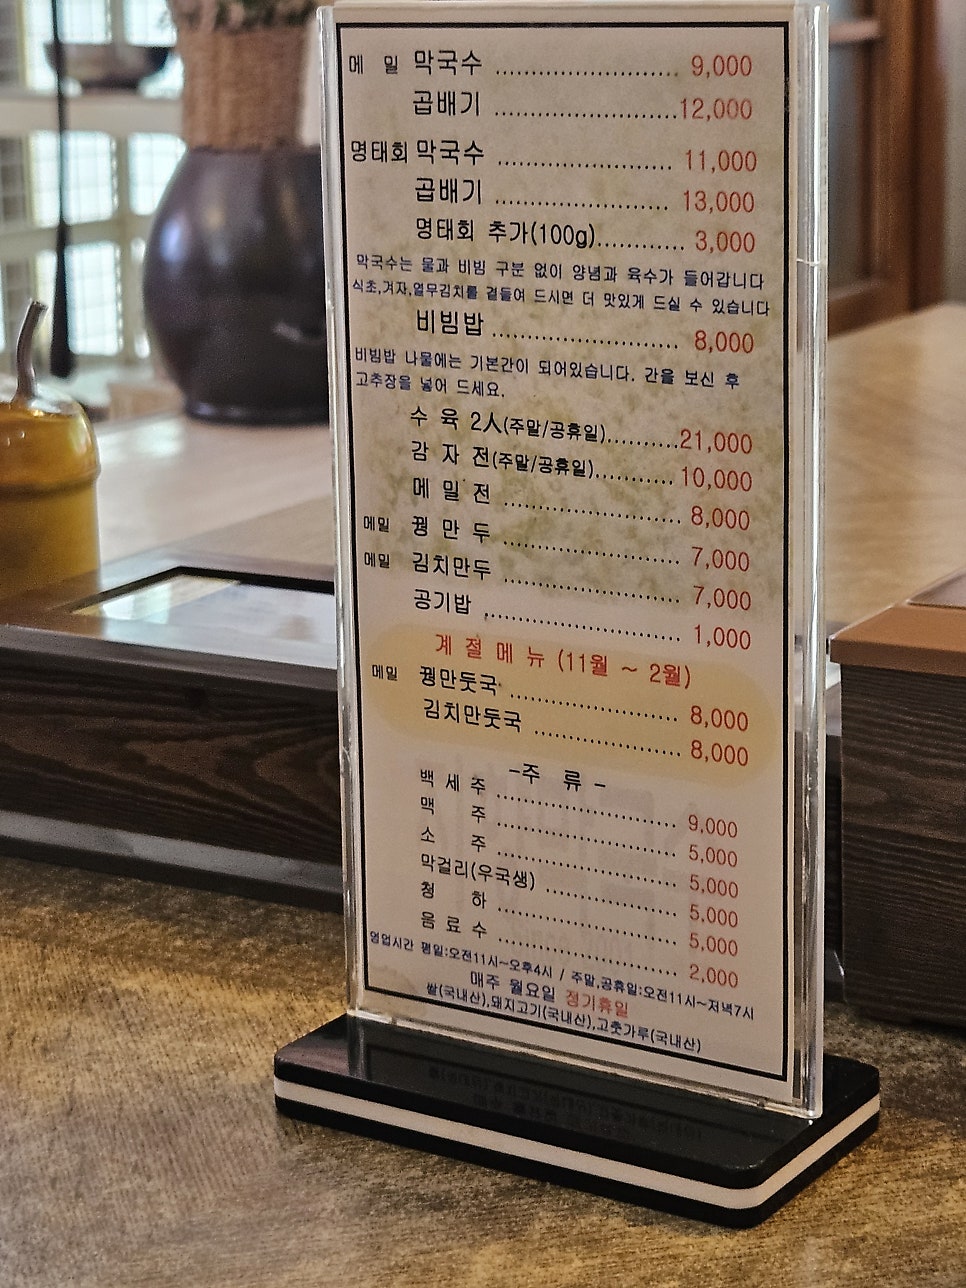 메 밀 막국수 ........................ 9,000
곱배기 ........................ 12,000
명태회 막국수 ........................ 11,000
곱배기 ........................ 13,000
명태회 추가(100g)............ 3,000
막국수는 물과 비빔 구분 없이 양념과 육수가 들어갑니다
식초,겨자,열무김치를 곁들여 드시면 더 맛있게 드실 수 있습니다
비빔밥 ........................ 8,000
비빔밥 나물에는 기본간이 되어있습니다. 간을 보신 후
고추장을 넣어 드세요.
수 육 2人(주말/공휴일)..........21,000
감 자 전(주말/공휴일)........... 10,000
메 밀 전 ........................ 8,000
메밀 꿩 만 두 ........................ 7,000
메밀 김치만두 ........................ 7,000
공기밥 ........................ 1,000
계 절 메 뉴 (11월 ~ 2월)
메밀 꿩만둣국 ........................ 8,000
김치만둣국 ..................... 8,000
-주 류 -
백 세 주 ........................ 9,000
맥 주 ........................ 5,000
소 주 ........................ 5,000
막걸리(우국생) .................. 5,000
청 하 ........................ 5,000
음 료 수 ........................ 2,000
영업시간 평일:오전11시~오후4시 / 주말,공휴일:오전11시~저녁7시
매주 월요일 정기휴일
쌀(국내산),돼지고기(국내산),고춧가루(국내산)